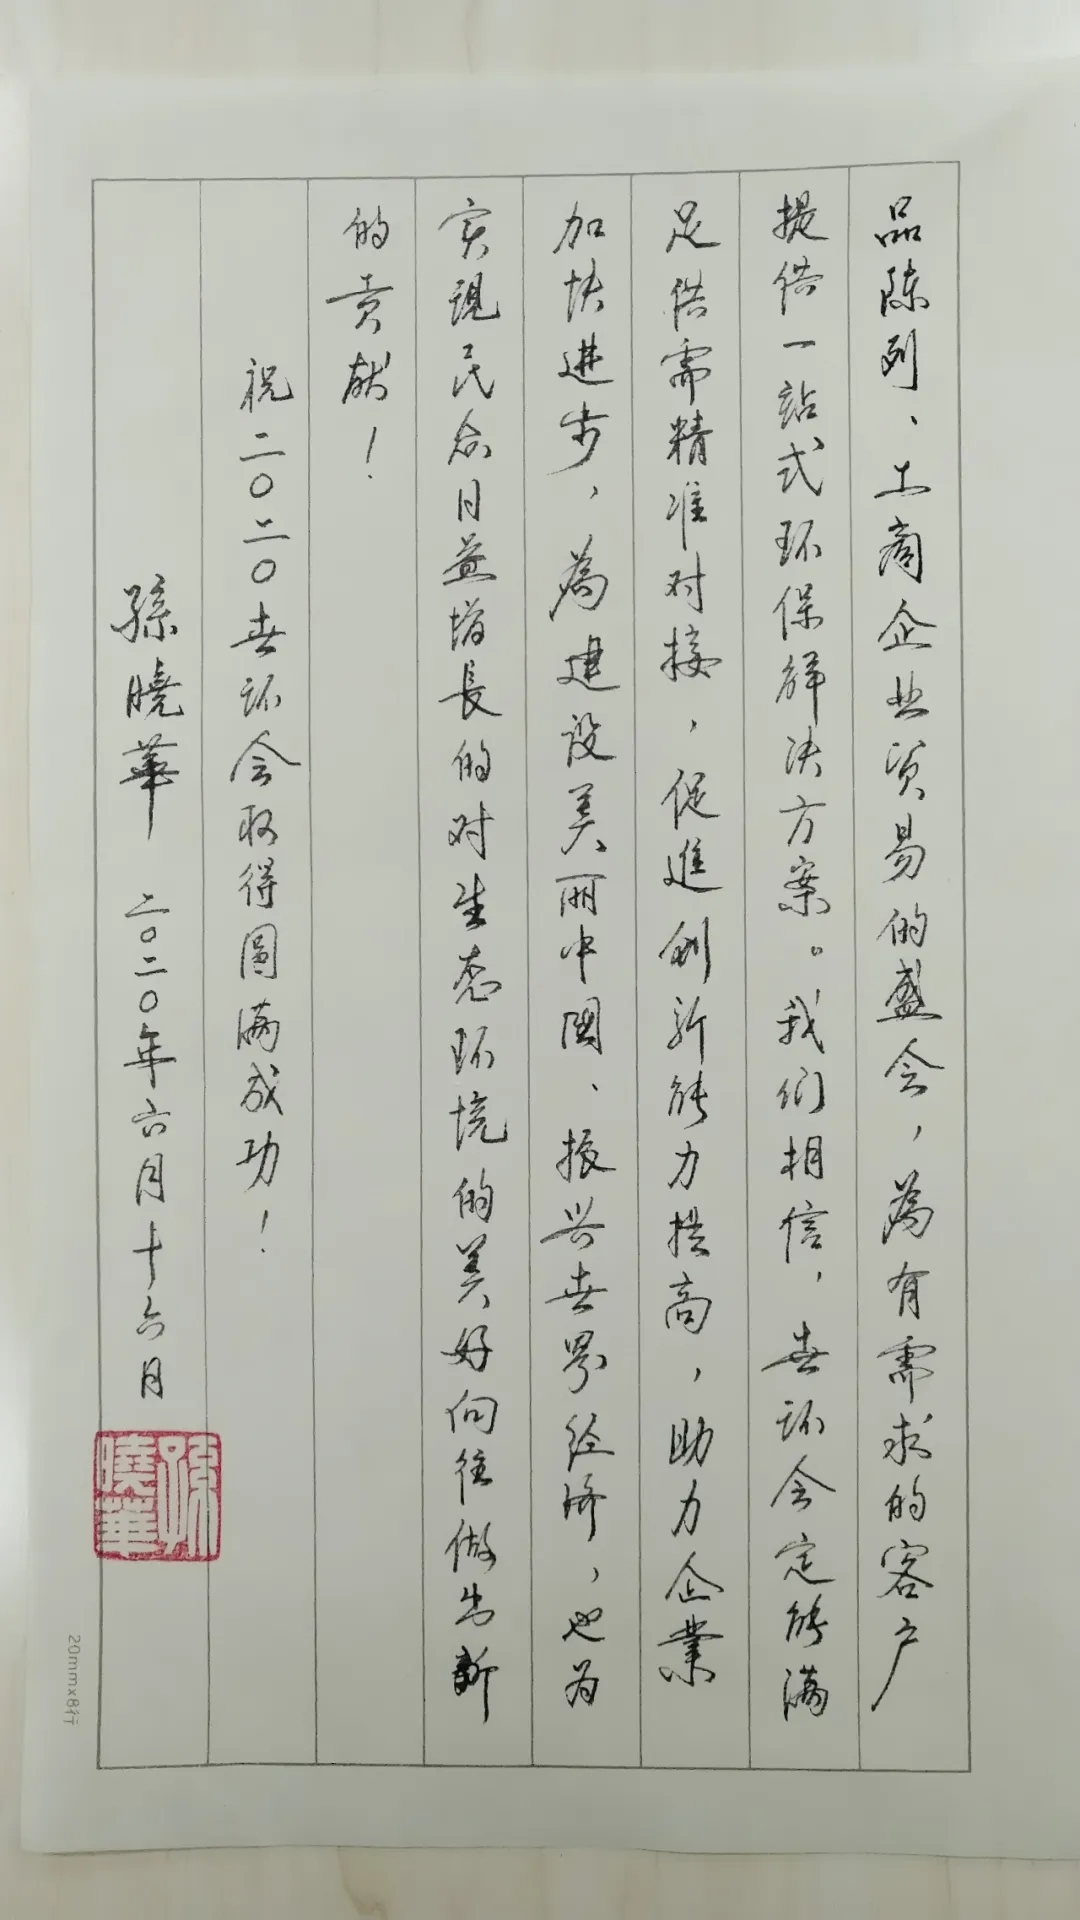 品陈列、工商企业贸易的盛会，為有需求的客户
提供一站式环保解决方案。我们相信，世环会定能满
足供需精准对接，促進创新能力提高，助力企業
加快進步，為建设美丽中國、振兴世界经济，也为
实现民众日益增長的对生态环境的美好向往做出新
的贡献！
祝二〇二〇世环会取得圆满成功！
孫曉華 二〇二〇年六月十六日
孫曉華
20mmx8行